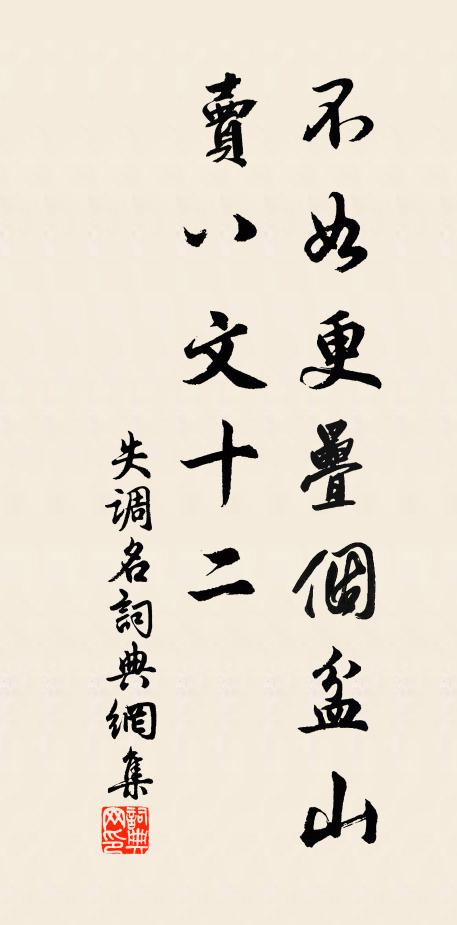 不如更疊個盆山
賣八文十二
失调名詞典網集
詞典网印